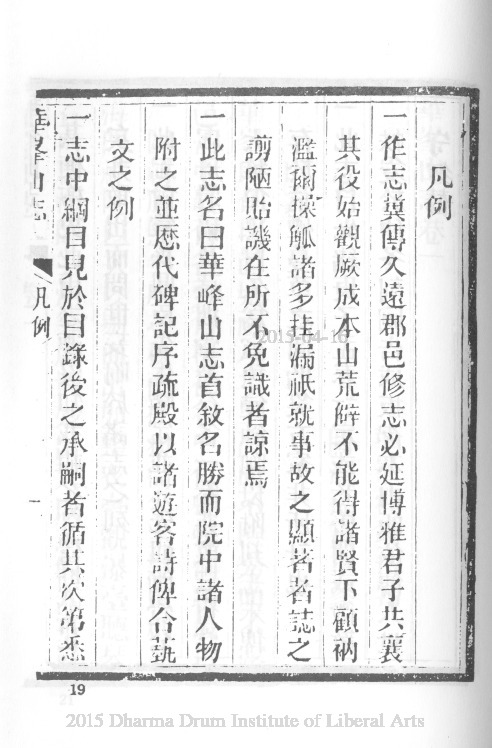 凡例
一作志冀傳久遠郡邑修志必延博雅君子共襄
其役始觀厥成本山荒僻不能得諸賢下顧衲
濫爾操觚諸多挂漏祇就事故之顯著者誌之
謭陋貽譏在所不免識者諒焉
一此志名曰華峰山志首敘名勝而院中諸人物
附之並歷代碑記序疏殿以諸遊客詩俾合藝
文之例
一志中綱目見於目錄後之承嗣者循其次第悉
華峯山志
凡例
一
19
2015-04-16
2015 Dharma Drum Institute of Liberal Arts